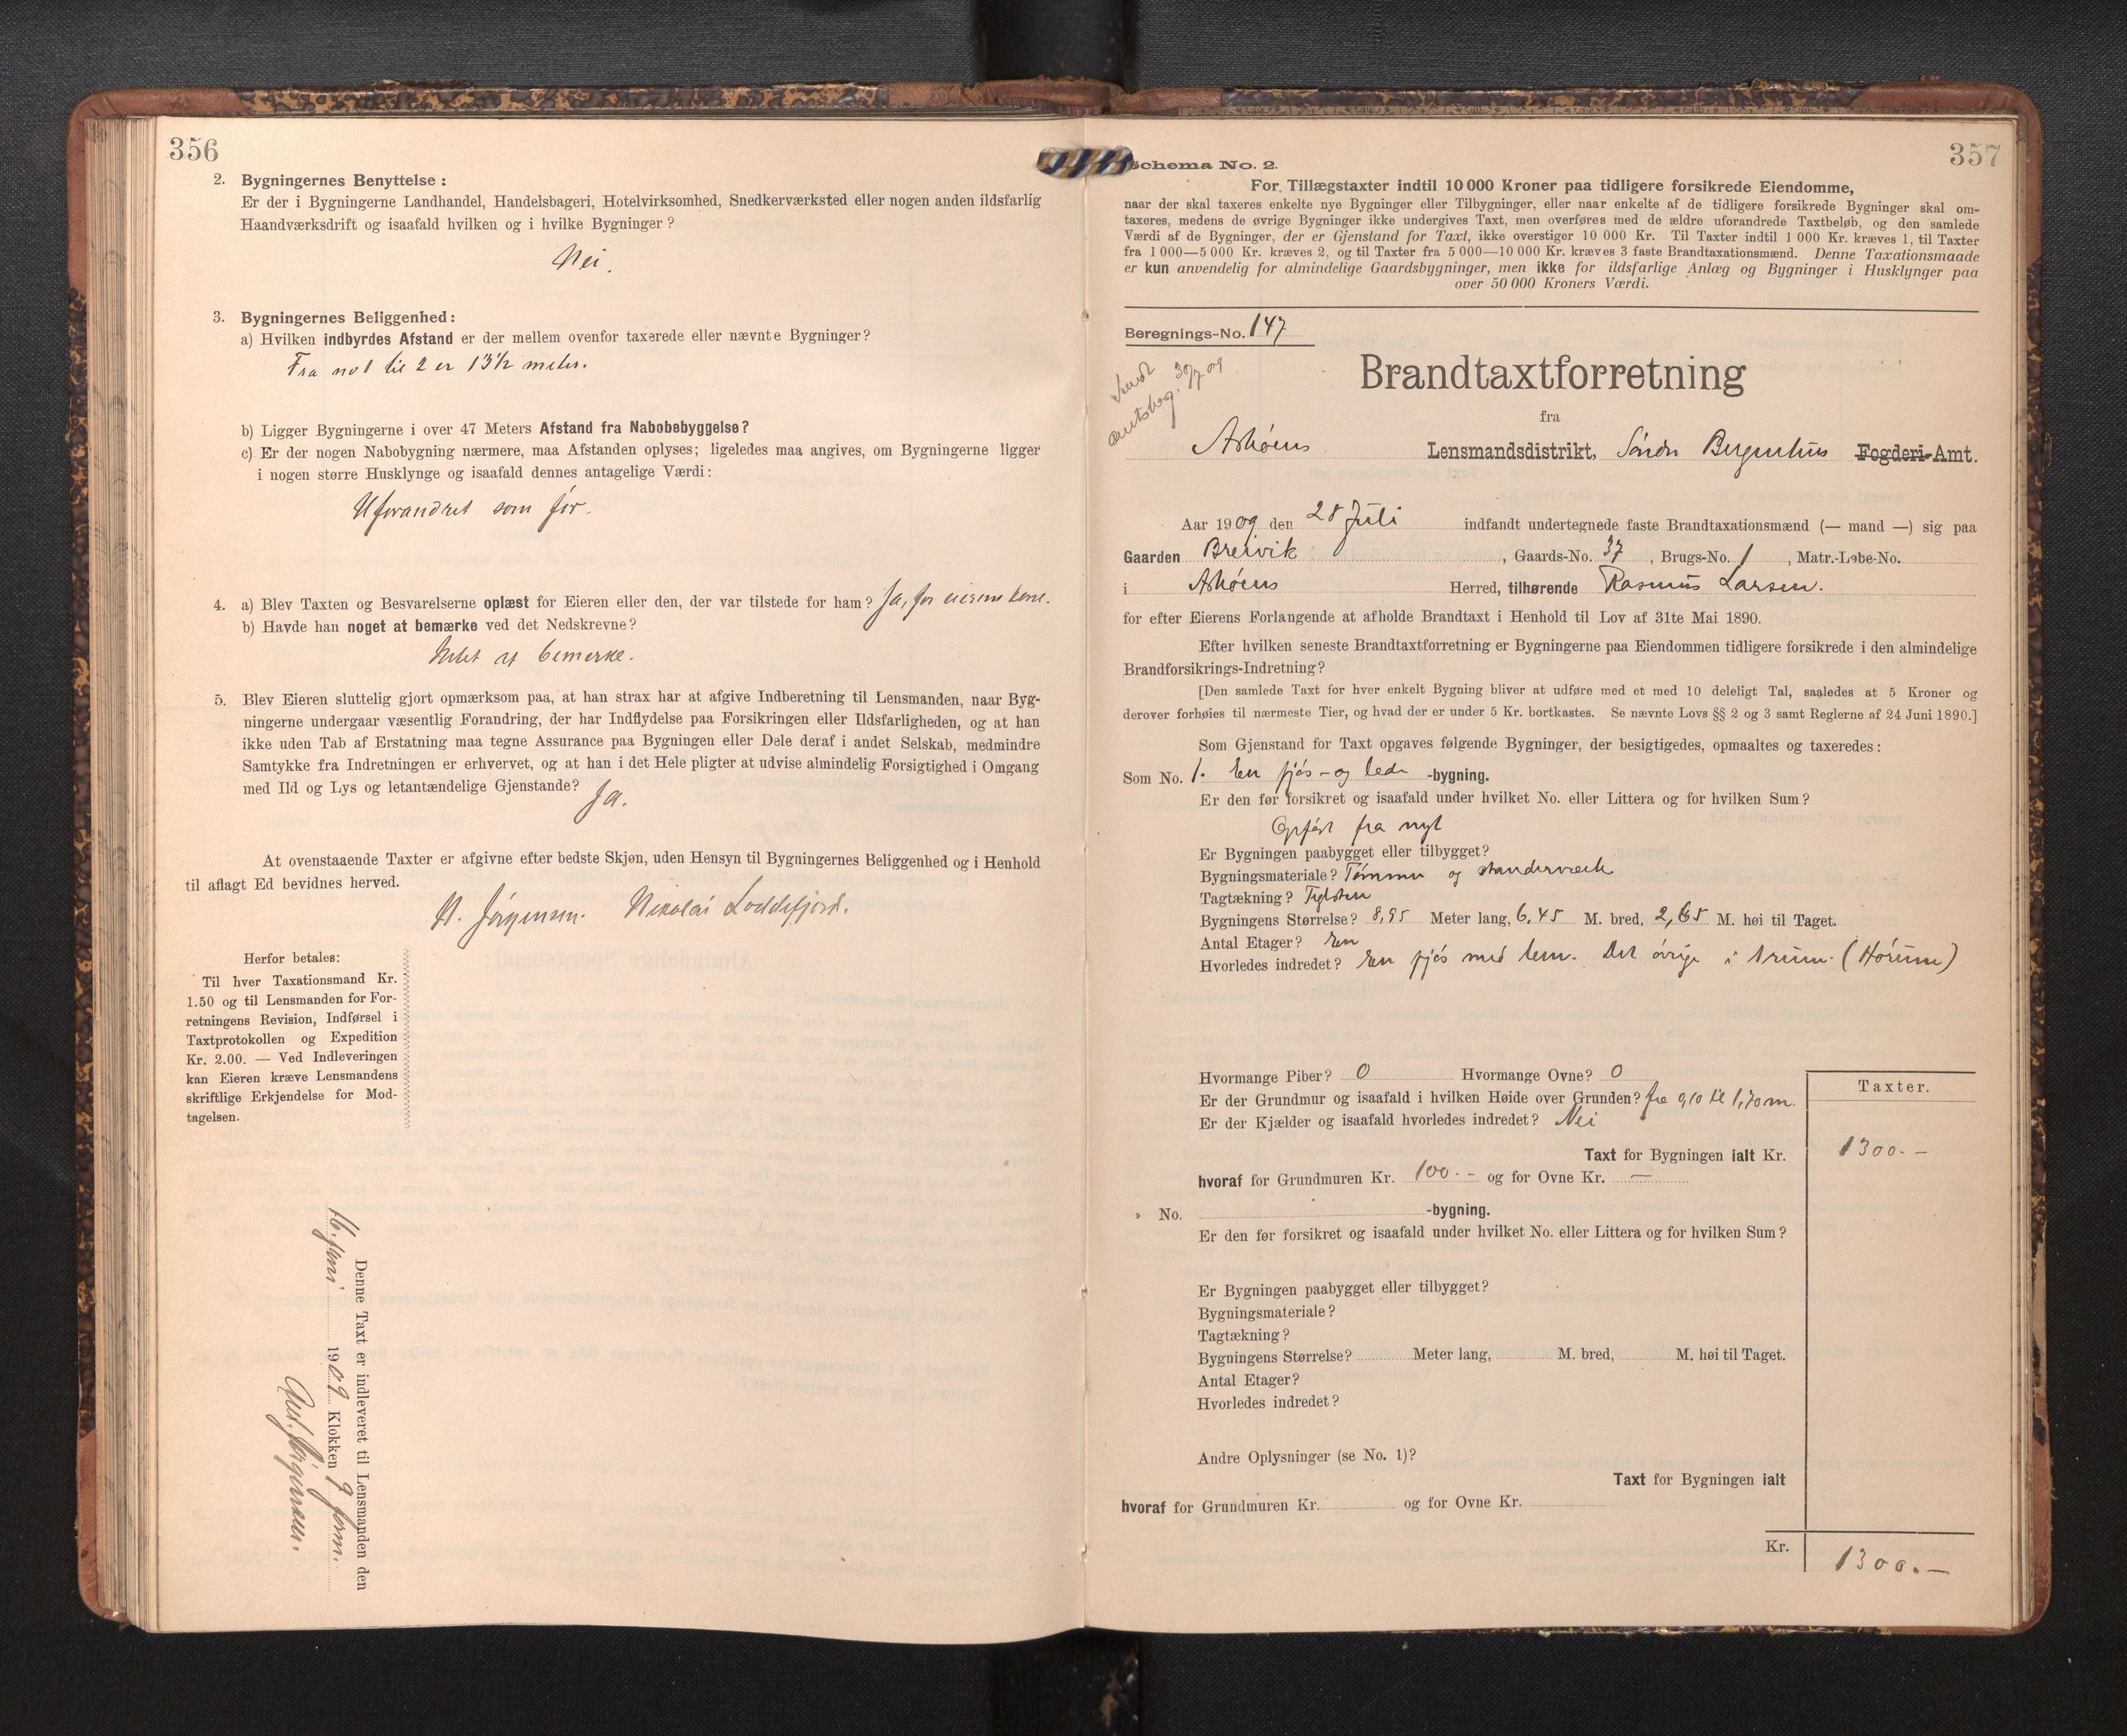 356
2. Bygningernes Benyttelse:
Er der i Bygningerne Landhandel, Handelsbageri, Hotelvirksomhed, Snedkerværksted eller nogen anden ildsfarlig
Haandværksdrift og isaafald hvilken og i hvilke Bygninger?
Nei.
3. Bygningernes Beliggenhed:
a) Hvilken indbyrdes Afstand er der mellem ovenfor taxerede eller nævnte Bygninger?
Fra no 1 til 2 er 13½ meter.
b) Ligger Bygningerne i over 47 Meters Afstand fra Nabobebyggelse?
c) Er der nogen Nabobygning nærmere, maa Afstanden oplyses; ligeledes maa angives, om Bygningerne ligger
i nogen større Husklynge og isaafald dennes antagelige Værdi:
Uforandret som før.
4. a) Blev Taxten og Besvarelserne oplæst for Eieren eller den, der var tilstede for ham? Ja, for eierens kone.
b) Havde han noget at bemærke ved det Nedskrevne?
Intet at bemerke.
5. Blev Eieren sluttelig gjort opmærksom paa, at han strax har at afgive Indberetning til Lensmanden, naar Byg-
ningerne undergaar væsentlig Forandring, der har Indflydelse paa Forsikringen eller Ildsfarligheden, og at han
ikke uden Tab af Erstatning maa tegne Assurance paa Bygningen eller Dele deraf i andet Selskab, medmindre
Samtykke fra Indretningen er erhvervet, og at han i det Hele pligter at udvise almindelig Forsigtighed i Omgang
med Ild og Lys og letantændelige Gjenstande? Ja.
At ovenstaaende Taxter er afgivne efter bedste Skjøn, uden Hensyn til Bygningernes Beliggenhed og i Henhold
til aflagt Ed bevidnes herved.
N. Jørgensen. Nikolai Loddefjord.
Herfor betales:
Til hver Taxationsmand Kr.
1.50 og til Lensmanden for For-
retningens Revision, Indførsel i
Taxtprotokollen og Expedition
Kr. 2.00. — Ved Indleveringen
kan Eieren kræve Lensmandens
skriftlige Erkjendelse for Mod-
tagelsen.
Denne Taxt er indleveret til Lensmanden den
16. juni 1909 Klokken 9 form.
357
Schema No. 2.
For Tillægstaxter indtil 10 000 Kroner paa tidligere forsikrede Eiendomme,
naar der skal taxeres enkelte nye Bygninger eller Tilbygninger, eller naar enkelte af de tidligere forsikrede Bygninger skal om-
taxeres, medens de øvrige Bygninger ikke undergives Taxt, men overføres med de ældre uforandrede Taxtbeløb, og den samlede
Værdi af de Bygninger, der er Gjenstand for Taxt, ikke overstiger 10 000 Kr. Til Taxter indtil 1 000 Kr. kræves 1, til Taxter
fra 1 000—5 000 Kr. kræves 2, og til Taxter fra 5 000—10 000 Kr. kræves 3 faste Brandtaxationsmænd. Denne Taxationsmaade
er kun anvendelig for almindelige Gaardsbygninger, men ikke for ildsfarlige Anlæg og Bygninger i Husklynger paa
over 50 000 Kroners Værdi.
Beregnings-No. 147
Sendt
30/7 09
Brandtaxtforretning
fra
Askøens Lensmandsdistrikt, Søndre Bergenhus Fogderi-Amt.
Aar 1909 den 28 Juli indfandt undertegnede faste Brandtaxationsmænd (— mand —) sig paa
Gaarden Breivik, Gaards-No. 37, Brugs-No. 1, Matr.-Løbe-No.
i Askøens Herred, tilhørende Rasmus Larsen.
for efter Eierens Forlangende at afholde Brandtaxt i Henhold til Lov af 31te Mai 1890.
Efter hvilken seneste Brandtaxtforretning er Bygningerne paa Eiendommen tidligere forsikrede i den almindelige
Brandforsikrings-Indretning?
[Den samlede Taxt for hver enkelt Bygning bliver at udføre med et med 10 deleligt Tal, saaledes at 5 Kroner og
derover forhøies til nærmeste Tier, og hvad der er under 5 Kr. bortkastes. Se nævnte Lovs §§ 2 og 3 samt Reglerne af 24 Juni 1890.]
Som Gjenstand for Taxt opgaves følgende Bygninger, der besigtigedes, opmaaltes og taxeredes:
Som No. 1. En fjøs- og lade -bygning.
Er den før forsikret og isaafald under hvilket No. eller Littera og for hvilken Sum?
Opført fra nyt
Er Bygningen paabygget eller tilbygget?
Bygningsmateriale? Tømmer og standerverk
Tagtækning? Teglsten
Bygningens Størrelse? 8,95 Meter lang, 6,45 M. bred, 2,65 M. høi til Taget.
Antal Etager? En
Hvorledes indredet? En fjøs med lem. Det øvrige i 1 rum. (Hørum)
Hvormange Piber? 0 Hvormange Ovne? 0
Er der Grundmur og isaafald i hvilken Høide over Grunden? fra 0,10 til 1,70 m.
Er der Kjælder og isaafald hvorledes indredet? Nei
Taxter.
Taxt for Bygningen ialt Kr. 1300.-
hvoraf for Grundmuren Kr. 100.- og for Ovne Kr. —
» No. -bygning.
Er den før forsikret og isaafald under hvilket No. eller Littera og for hvilken Sum?
Er Bygningen paabygget eller tilbygget?
Bygningsmateriale?
Tagtækning?
Bygningens Størrelse? Meter lang, M. bred, M. høi til Taget.
Antal Etager?
Hvorledes indredet?
Andre Oplysninger (se No. 1)?
Taxt for Bygningen ialt
hvoraf for Grundmuren Kr. og for Ovne Kr.
Kr. 1300.—